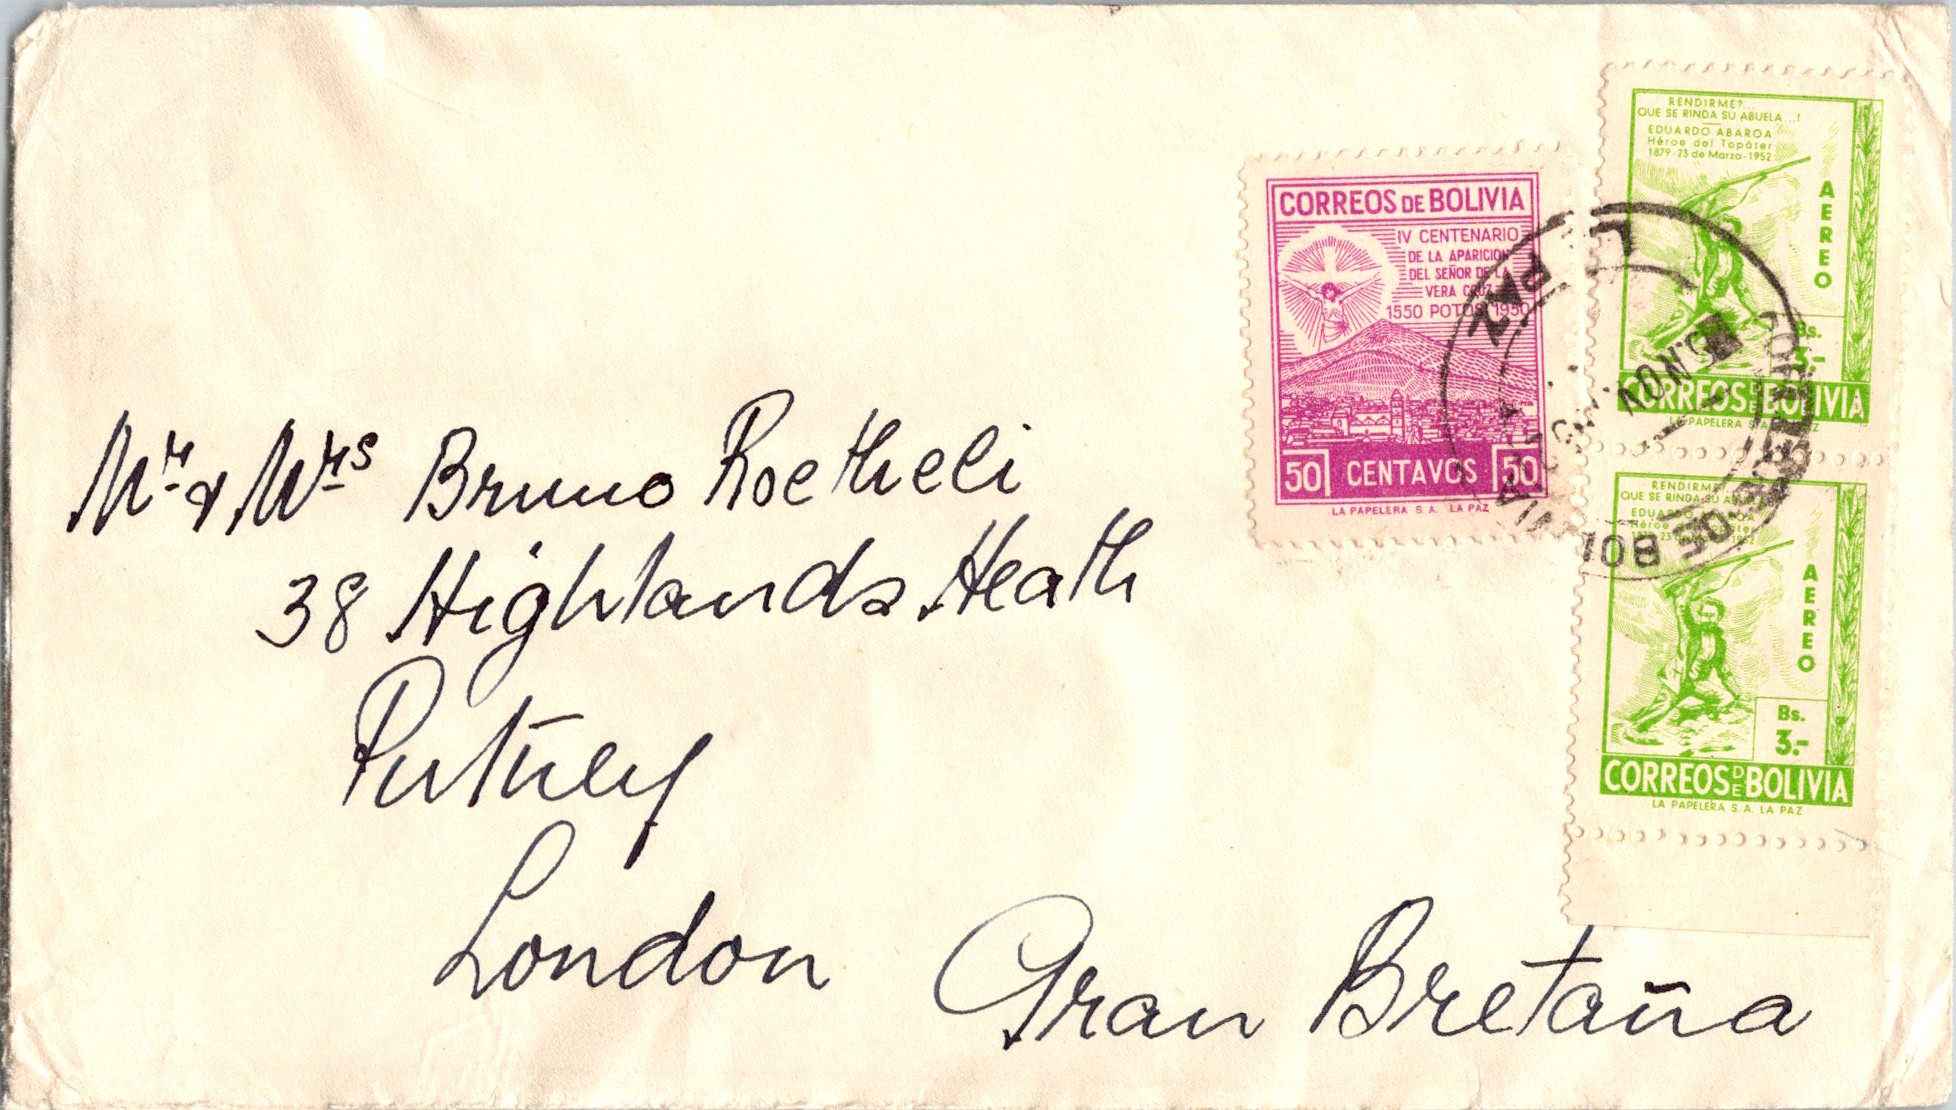 RENDIRME?...
QUE SE RINDA SU ABUELA...!
EDUARDO ABAROA
Héroe del Topáter
1879-23 de Marzo-1952
AEREO
Bs.
3.-
CORREOS DE BOLIVIA
LA PAPELERA S. A. LA PAZ
CORREOS DE BOLIVIA
IV CENTENARIO
DE LA APARICION
DEL SEÑOR DE LA
VERA CRUZ
1550 POTOSI 1950
50 CENTAVOS 50
LA PAPELERA S. A. LA PAZ
LA PAZ
NOV
CORREOS DE BOLIVIA
RENDIRME
QUE SE RINDA SU ABUELA
EDUARDO ABAROA
Héroe del Topáter
AEREO
Bs.
3.-
CORREOS DE BOLIVIA
LA PAPELERA S. A. LA PAZ
Mr. & Mrs Bruno Roetheli
38 Highlands Heath
Putney
London Gran Bretaña